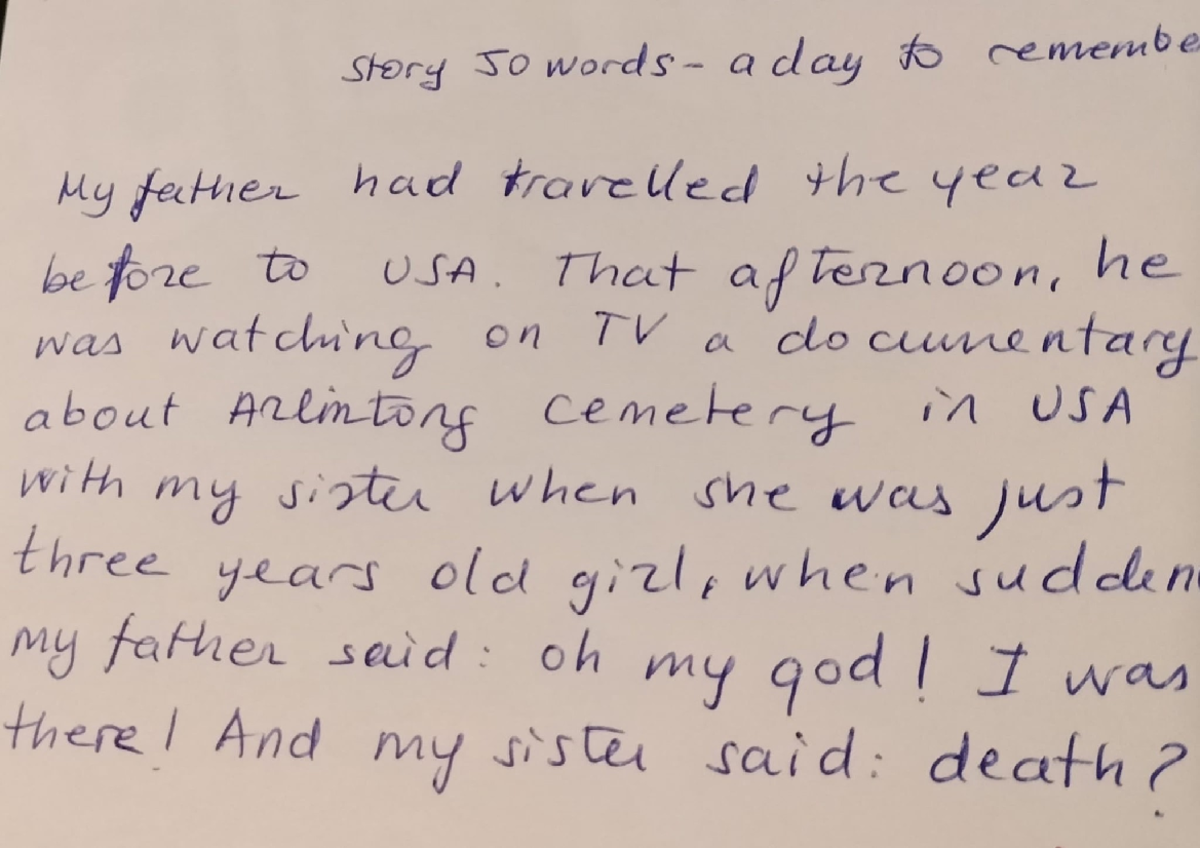 story 50 words - a day to remembe
My father had travelled the year
before to USA. That afternoon, he
was watching on TV a documentary
about Arlintong cemetery in USA
with my sister when she was just
three years old girl, when sudden
my father said: oh my god! I was
there! And my sister said: death?